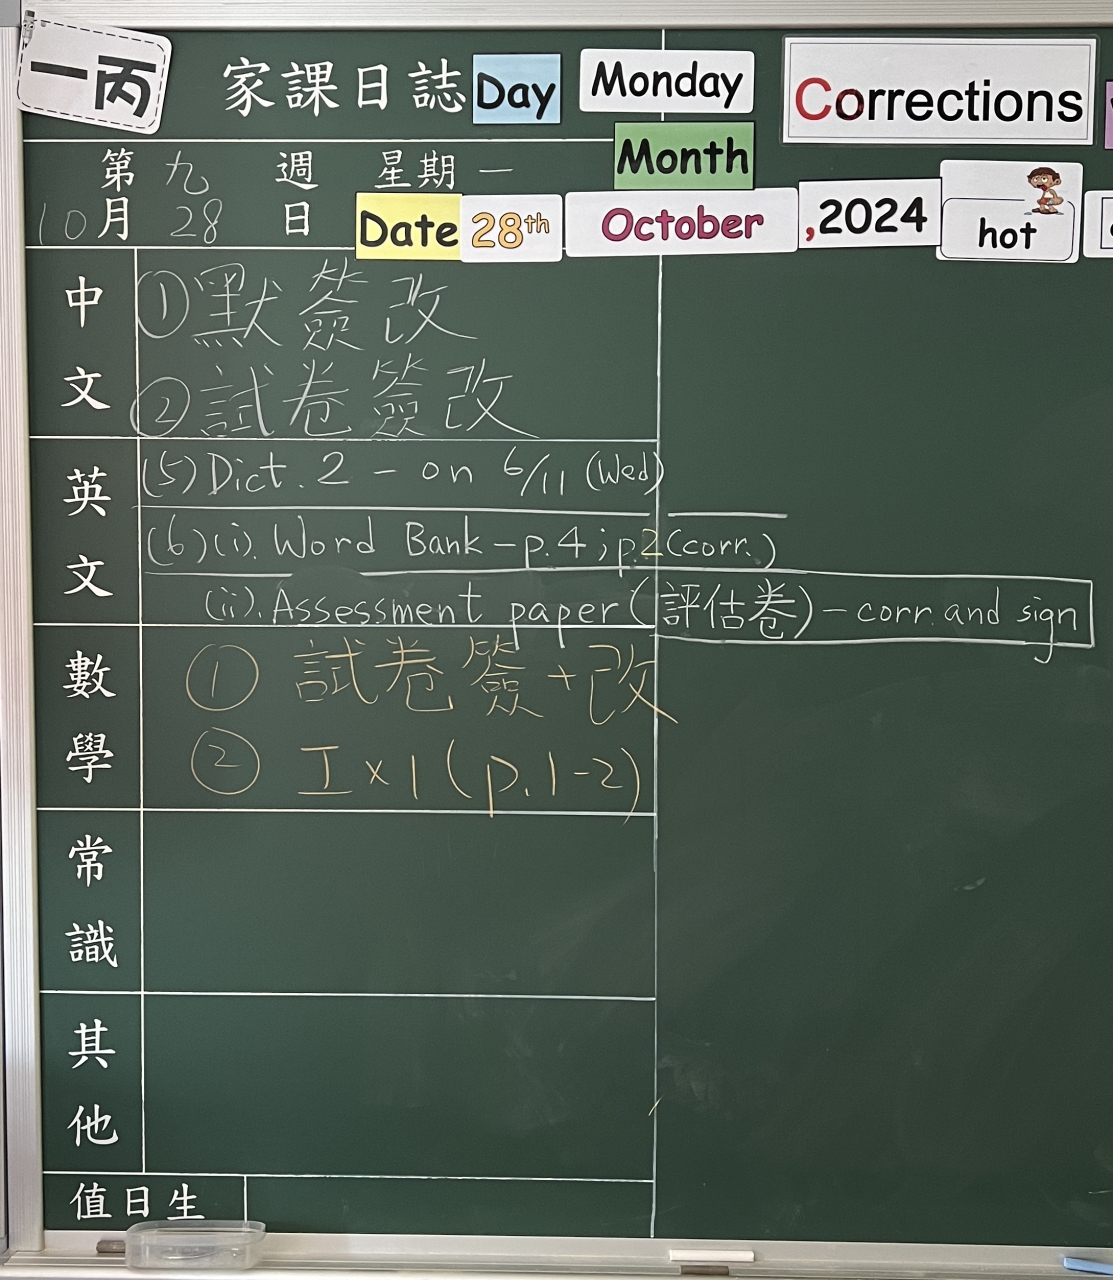 一丙
家課日誌 Day Monday Corrections
Month
第九週 星期一
10月28日 Date 28th October ,2024 hot
中文
①默簽改
②試卷簽改
英文
(5) Dict. 2 - on 6/11 (Wed)
(6)(i). Word Bank - p.4 ; p.2 (corr.)
(ii). Assessment paper (評估卷) - corr. and sign
數學
① 試卷簽+改
② I×1 (p.1-2)
常識
其他
值日生